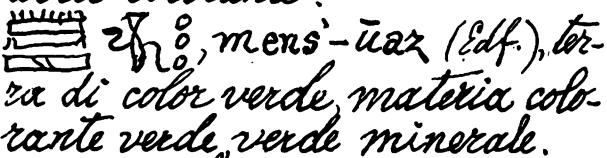 mens'-ūaz (Edf.), ter-
ra di color verde, materia colo-
rante verde, verde minerale.